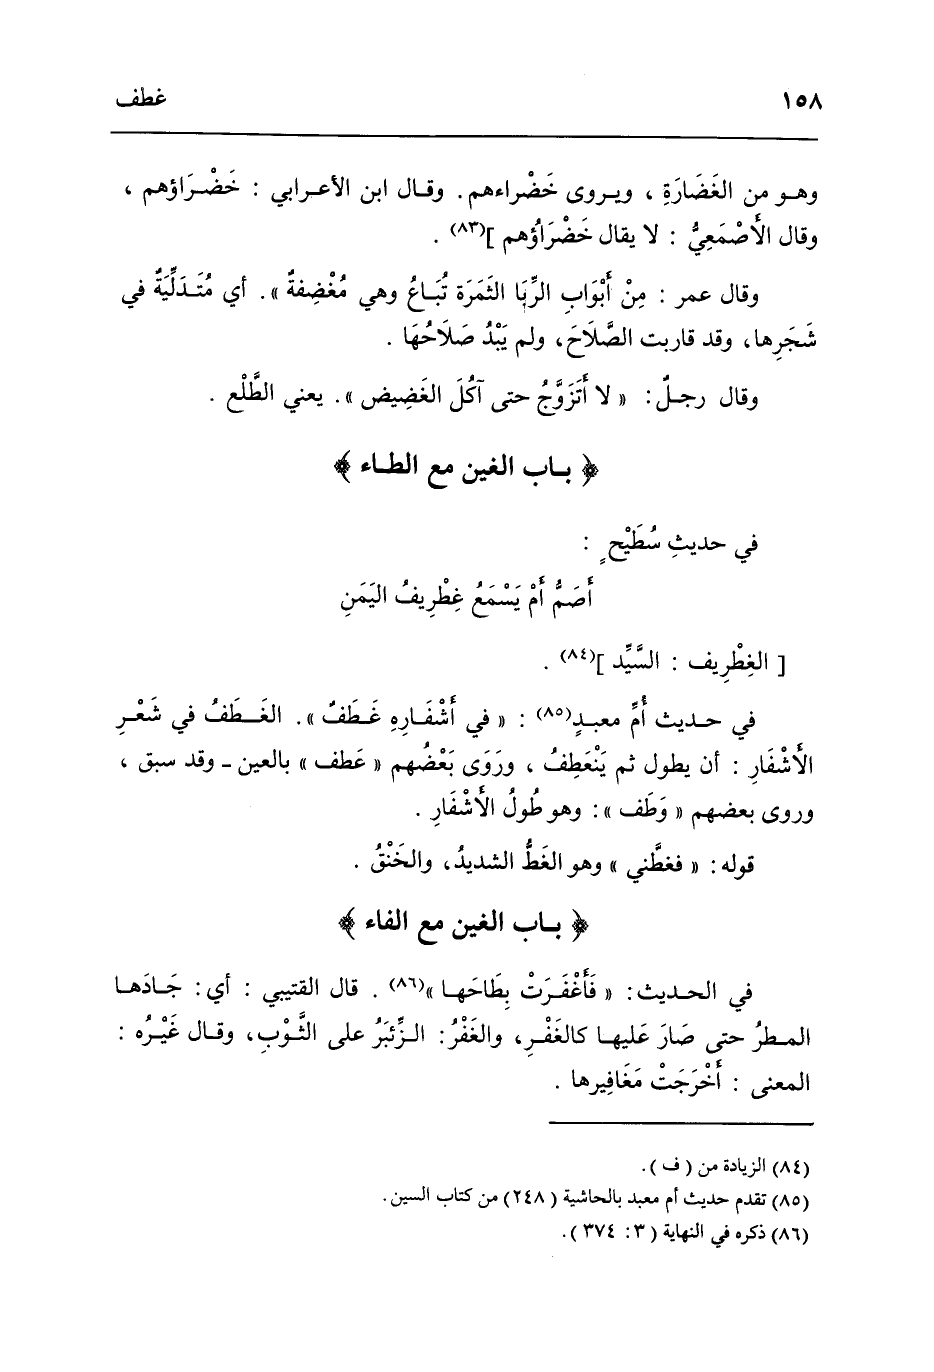 ١٥٨ غطف
وهـو من الغَضَارَةِ ، ويـروى خَضْراءهم. وقـال ابن الأعـرابي : خَضْـرَاؤهم ،
وقال الأَصْمَعِيُّ : لا يقال خَضْرَاؤُهم ](٨٣) .
وقال عمر : مِنْ أَبْوَابِ الرِّبَا الثمَرَة تُبَـاعُ وهي مُغْضِفةٌ ». أي مُتَـدَلِّيَةٌ في
شَجَرِها، وقد قاربت الصَّلَاحَ، ولم يَبْدُ صَلَاحُهَا .
وقال رجـلٌ: « لا أَتَزَوَّجُ حتى آكُلَ الغَضِيض ». يعني الطَّلْع .
﴿ بـاب الغين مع الطـاء ﴾
في حديثِ سُطَيْحٍ :
أَصَمُّ أَمْ يَسْمَعُ غِطْرِيفُ اليَمَنِ
[ الغِطْرِيف : السَّيِّد ](٨٤) .
في حـديث أُمِّ معبـدٍ(٨٥) : « في أَشْفَـارِهِ غَـطَفٌ ». الغَـطَفُ في شَعْـرِ
الأَشْفَارِ : أن يطول ثم يَنْعَطِفُ ، ورَوَى بَعْضُهم « عَطف » بالعين - وقد سبق ،
وروى بعضهم « وَطَف »: وهو طُولُ الأَشْفَارِ .
قوله: « فغطَّني » وهو الغَطُّ الشديدُ، والخَنْقُ .
﴿ بـاب الغين مع الفاء ﴾
في الحـديث: « فَأَغْفَـرَتْ بِطَاحَهـا »(٨٦) . قال القتيبي : أي: جَـادَهـا
المـطرُ حتى صَارَ عَليهـا كالغَفْـرِ، والغَفْرُ: الـزِّئبَرُ على الثَّـوْبِ، وقـال غَيْـرُه :
المعنى : أَخْرَجَتْ مَغَافِيرها .
(٨٤) الزيادة من ( ف ).
(٨٥) تقدم حديث أم معبد بالحاشية ( ٢٤٨ ) من كتاب السين.
(٨٦) ذكره في النهاية ( ٣ : ٣٧٤ ).